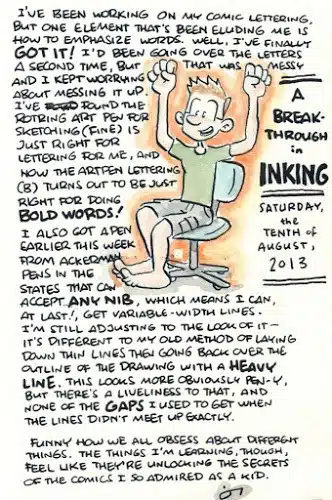 I'VE BEEN WORKING ON MY COMIC LETTERING,
BUT ONE ELEMENT THAT'S BEEN ELUDING ME IS
HOW TO EMPHASIZE WORDS. WELL, I'VE FINALLY
GOT IT! I'D BEEN GOING OVER THE LETTERS
A SECOND TIME, BUT THAT WAS MESSY
AND I KEPT WORRYING
ABOUT MESSING IT UP.
I'VE FOUND THE
ROTRING ART PEN FOR
SKETCHING (FINE) IS
JUST RIGHT FOR
LETTERING FOR ME, AND
NOW THE ARTPEN LETTERING
(B) TURNS OUT TO BE JUST
RIGHT FOR DOING
BOLD WORDS!
A
BREAK-
THROUGH
in
INKING
SATURDAY,
the
TENTH of
AUGUST,
2013
I ALSO GOT A PEN
EARLIER THIS WEEK
FROM ACKERMAN
PENS IN THE
STATES THAT CAN
ACCEPT ANY NIB, WHICH MEANS I CAN,
AT LAST!, GET VARIABLE-WIDTH LINES.
I'M STILL ADJUSTING TO THE LOOK OF IT—
IT'S DIFFERENT TO MY OLD METHOD OF LAYING
DOWN THIN LINES THEN GOING BACK OVER THE
OUTLINE OF THE DRAWING WITH A HEAVY
LINE. THIS LOOKS MORE OBVIOUSLY PEN-Y,
BUT THERE'S A LIVELINESS TO THAT, AND
NONE OF THE GAPS I USED TO GET WHEN
THE LINES DIDN'T MEET UP EXACTLY.
FUNNY HOW WE ALL OBSESS ABOUT DIFFERENT
THINGS. THE THINGS I'M LEARNING, THOUGH,
FEEL LIKE THEY'RE UNLOCKING THE SECRETS
OF THE COMICS I SO ADMIRED AS A KID.